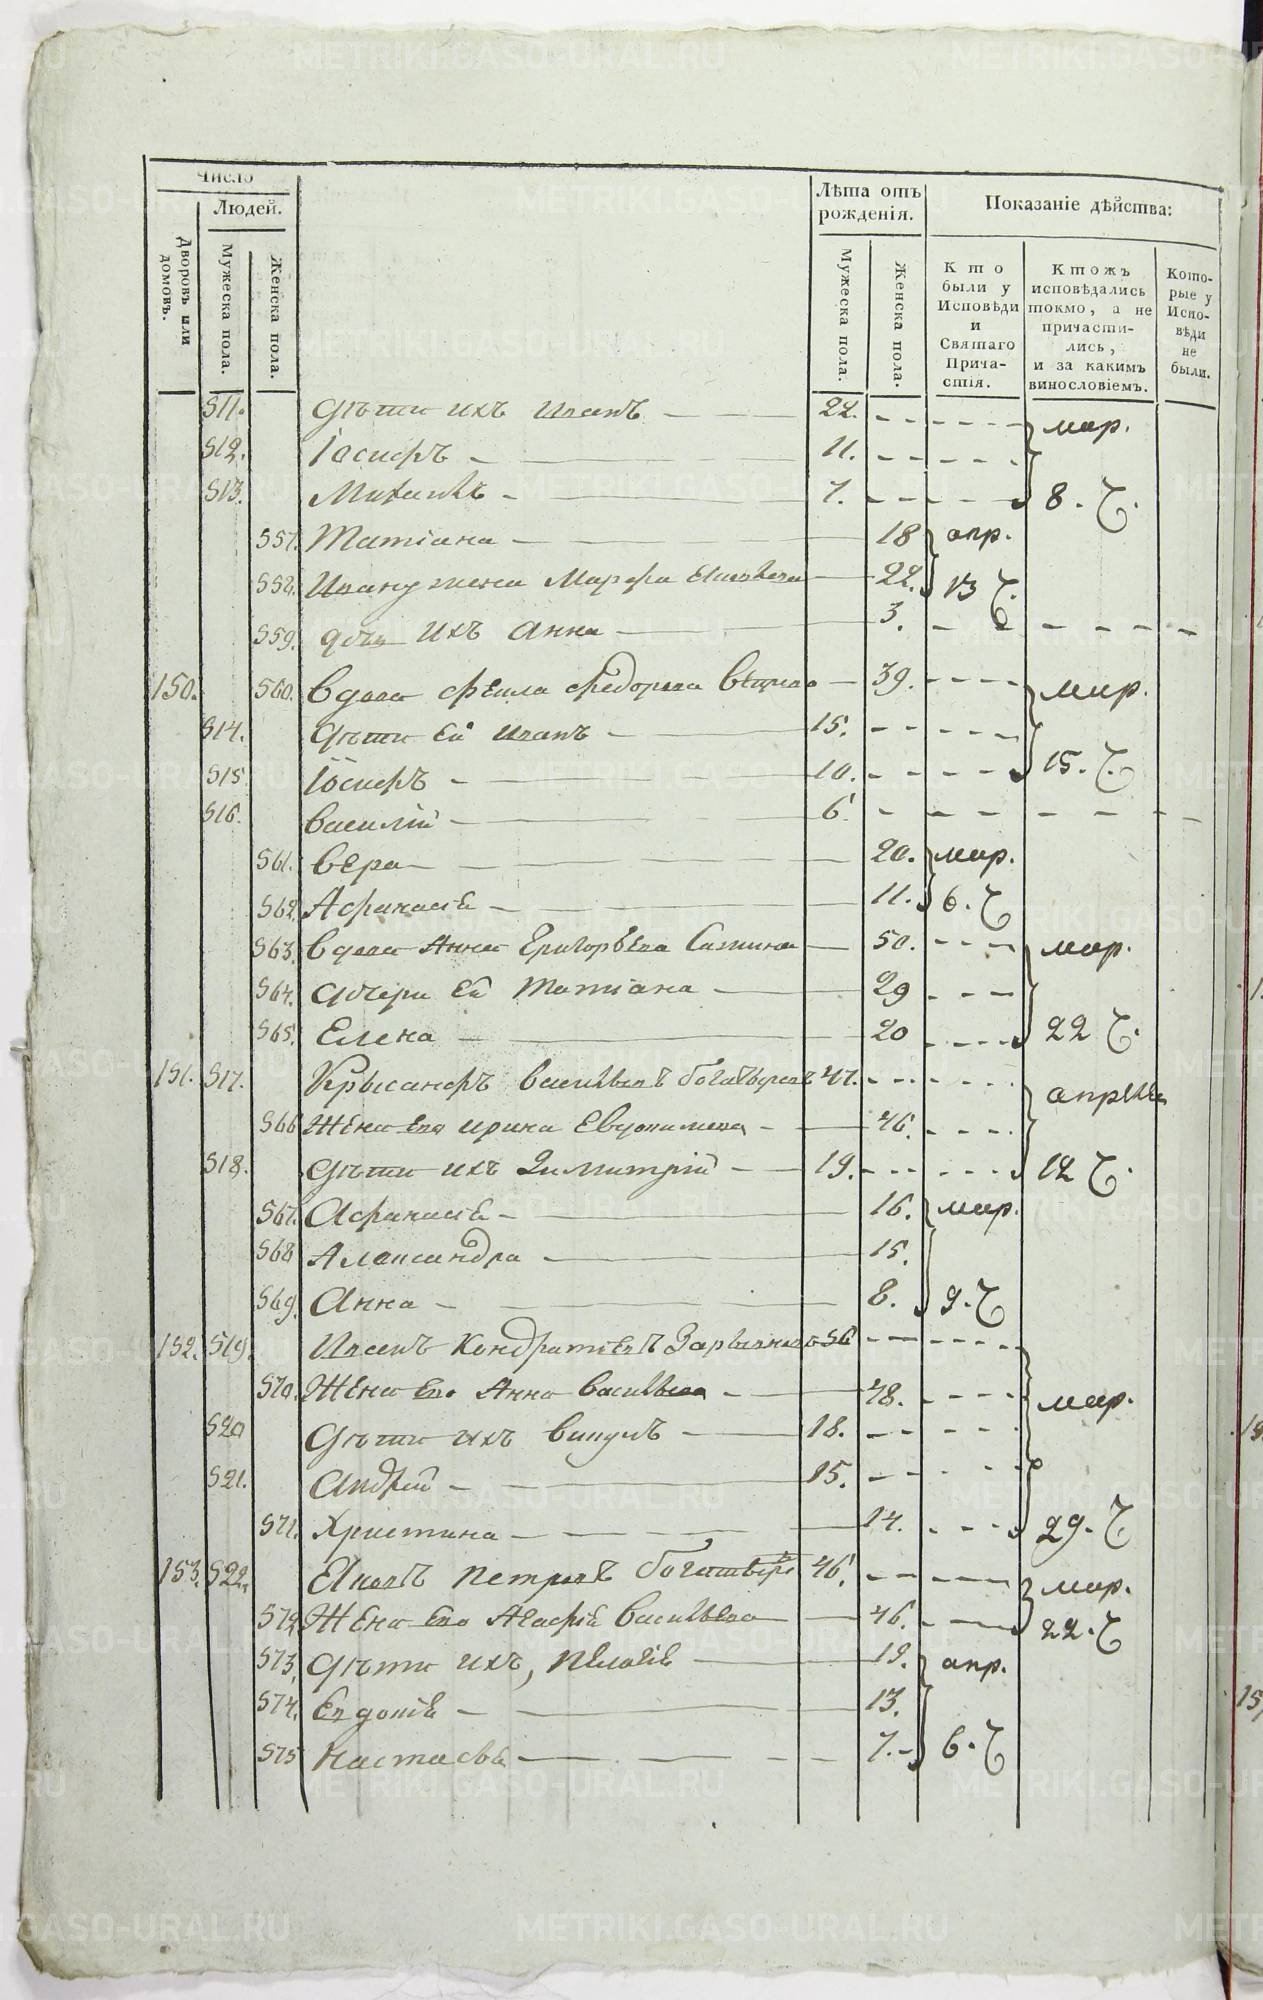 Число
Людей.
Дворовъ или домовъ.
Мужеска пола.
Женска пола.
Лѣта отъ рожденія.
Мужеска пола.
Женска пола.
Показаніе дѣйства:
Кто были у Исповѣди и Святаго Причастія.
Ктожъ исповѣдались токмо, а не причастились, и за какимъ винословіемъ.
Которые у Исповѣди не были.
511. Дѣти ихъ Иванъ 22. мар.
512. Іосифъ 11.
513. Михаилъ 7. 8. Ч.
557. Татіана 18 апр.
558. Ивану жена Марфа 22. 13 Ч.
559. дочь ихъ Анна 3.
150. 560. Вдова Ѳекла Федорова 39. мар.
514. Дѣти ея Иванъ 15.
515 Іосифъ 10. 15. Ч.
516. Василій 6.
561. Вера 20. мар.
562. Афанасія 11. 6. Ч
563. Вдова Анна Григорьева 50. мар.
564. Дочери ея Татіана 29
565. Елена 20 22 Ч.
151. 517. Хрисанфъ Васильевъ 47. апреля
566 Жена его Ирина 46.
518. Дѣти ихъ Димитрій 19. 12 Ч.
567. Афанасія 16. мар.
568 Александра 15.
569. Анна 8. 9. Ч
152. 519. Иванъ Кондратіевъ 56
570. Жена его Анна Васильева 48. мар.
520 Дѣти ихъ Викулъ 18.
521. Андрей 15.
571. Христина 14. 29. Ч
153. 522. Яковъ Петровъ 46. мар.
572 Жена его Агафія Васильева 46. 22. Ч
573. Дѣти ихъ, Пелагія 19. апр.
574. Евдокія 13.
575 Настасья 7. 6. Ч
METRIKI.GASO-URAL.RU